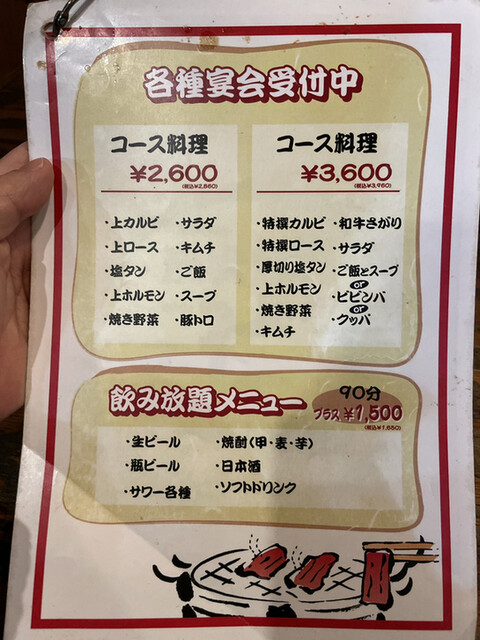 各種宴会受付中
コース料理
¥2,600
(税込¥2,860)
・上カルビ
・上ロース
・塩タン
・上ホルモン
・焼き野菜
・サラダ
・キムチ
・ご飯
・スープ
・豚トロ
コース料理
¥3,600
(税込¥3,960)
・特撰カルビ
・特撰ロース
・厚切り塩タン
・上ホルモン
・焼き野菜
・キムチ
・和牛さがり
・サラダ
・ご飯とスープ
or
・ビビンバ
or
・クッパ
飲み放題メニュー
90分
プラス ¥1,500
(税込¥1,650)
・生ビール
・瓶ビール
・サワー各種
・焼酎(甲・麦・芋)
・日本酒
・ソフトドリンク